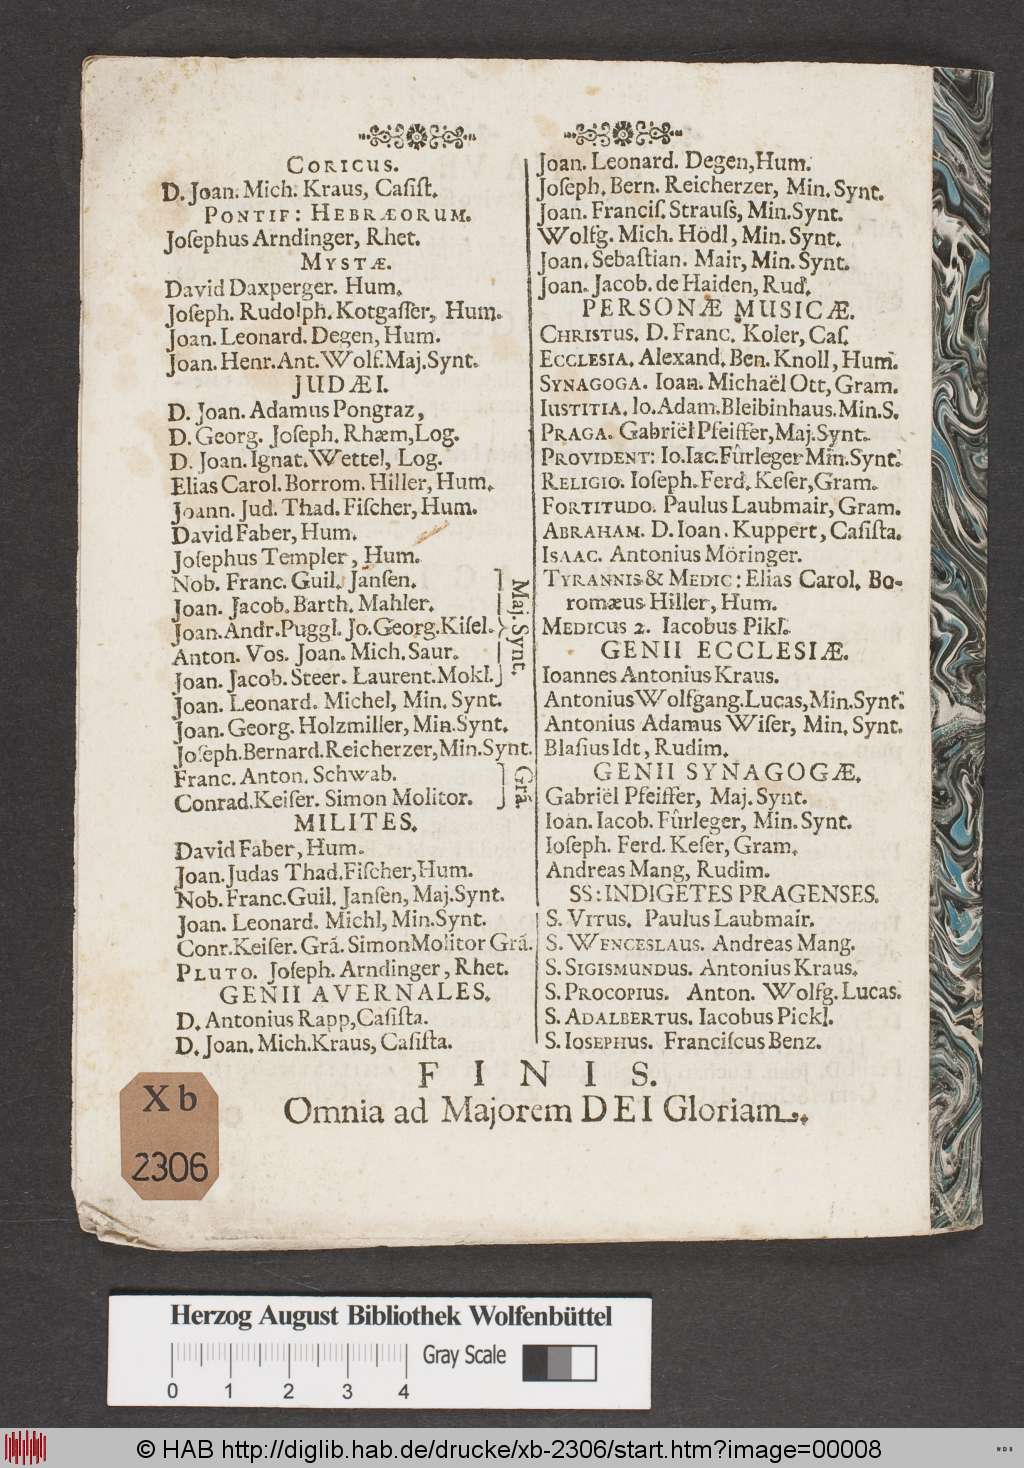 CORICUS.
D. Joan. Mich. Kraus, Casist.
PONTIF: HEBRÆORUM.
Josephus Arndinger, Rhet.
MYSTÆ.
David Daxperger. Hum.
Joseph. Rudolph. Kotgasser, Hum.
Joan. Leonard. Degen, Hum.
Joan. Henr. Ant. Wolf. Maj. Synt.
JUDÆI.
D. Joan. Adamus Pongraz,
D. Georg. Joseph. Rhæm, Log.
D. Joan. Ignat. Wettel, Log.
Elias Carol. Borrom. Hiller, Hum.
Joann. Jud. Thad. Fischer, Hum.
David Faber, Hum.
Josephus Templer, Hum.
Nob. Franc. Guil. Jansen.
Joan. Jacob. Barth. Mahler.
Joan. Andr. Puggl. Jo. Georg. Kisel.
Anton. Vos. Joan. Mich. Saur.
Joan. Jacob. Steer. Laurent. Mokl.
Maj. Synt.
Joan. Leonard. Michel, Min. Synt.
Joan. Georg. Holzmiller, Min. Synt.
Joseph. Bernard. Reicherzer, Min. Synt.
Franc. Anton. Schwab.
Conrad. Keiser. Simon Molitor.
Grã.
MILITES.
David Faber, Hum.
Joan. Judas Thad. Fischer, Hum.
Nob. Franc. Guil. Jansen, Maj. Synt.
Joan. Leonard. Michl, Min. Synt.
Conr. Keiser. Grã. Simon Molitor Grã.
PLUTO. Joseph. Arndinger, Rhet.
GENII AVERNALES.
D. Antonius Rapp, Casista.
D. Joan. Mich. Kraus, Casista.
Joan. Leonard. Degen, Hum.
Joseph. Bern. Reicherzer, Min. Synt.
Joan. Francis. Strauss, Min. Synt.
Wolfg. Mich. Hödl, Min. Synt.
Joan. Sebastian. Mair, Min. Synt.
Joan. Jacob. de Haiden, Rud.
PERSONÆ MUSICÆ.
CHRISTUS. D. Franc. Koler, Cas.
ECCLESIA. Alexand. Ben. Knoll, Hum.
SYNAGOGA. Ioan. Michaël Ott, Gram.
IUSTITIA. Io. Adam. Bleibinhaus. Min. S.
PRAGA. Gabriël Pfeiffer, Maj. Synt.
PROVIDENT: Io. Iac. Fûrleger Min. Synt.
RELIGIO. Ioseph. Ferd. Keser, Gram.
FORTITUDO. Paulus Laubmair, Gram.
ABRAHAM. D. Ioan. Kuppert, Casista.
ISAAC. Antonius Möringer.
TYRANNIS & MEDIC: Elias Carol. Bo-
romæus Hiller, Hum.
MEDICUS 2. Iacobus Pikl.
GENII ECCLESIÆ.
Ioannes Antonius Kraus.
Antonius Wolfgang. Lucas, Min. Synt.
Antonius Adamus Wiser, Min. Synt.
Blasius Idt, Rudim.
GENII SYNAGOGÆ.
Gabriël Pfeiffer, Maj. Synt.
Ioan. Iacob. Fûrleger, Min. Synt.
Ioseph. Ferd. Keser, Gram.
Andreas Mang, Rudim.
SS: INDIGETES PRAGENSES.
S. VITUS. Paulus Laubmair.
S. WENCESLAUS. Andreas Mang.
S. SIGISMUNDUS. Antonius Kraus.
S. PROCOPIUS. Anton. Wolfg. Lucas.
S. ADALBERTUS. Iacobus Pickl.
S. IOSEPHUS. Franciscus Benz.
FINIS.
Omnia ad Majorem DEI Gloriam.
Xb
2306
Herzog August Bibliothek Wolfenbüttel
Gray Scale
0 1 2 3 4
© HAB http://diglib.hab.de/drucke/xb-2306/start.htm?image=00008
WDB